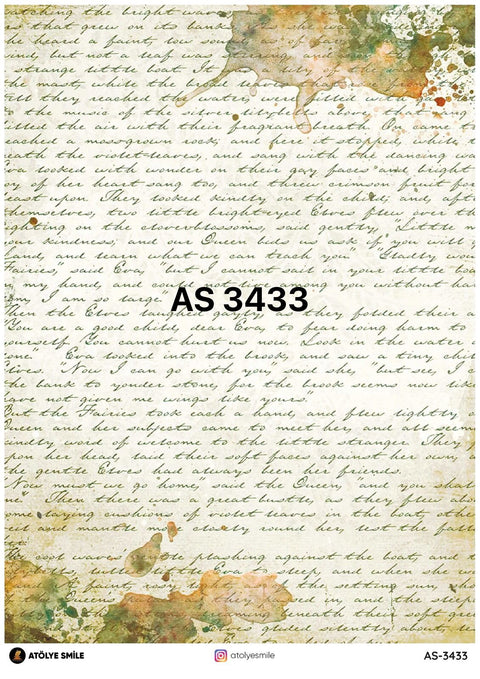 watching the bright wave
that grew on its bank
she heard a faint, low sound as of
ind, but not a leaf was
strange little boat. It
the mast, while the broad leaves
till they reached the water, were filled with
to the music of the silver lilybells above, that
filled the air with their fragrant breath. On came t
eached a moss-grown rock; and here it stopped, while t
eath the violet-leaves, and sang with the dancing wa
va looked with wonder on their gay faces and bright
oy of her heart sang too, and threw crimson fruit for
east upon. They looked kindly on the child, and, afte
hemselves, two little bright-eyed Elves flew over th
ghting on the clover-blossoms, said gently, "Little m
our kindness; and our Queen bids us ask if you will g
Land, and learn what we can teach you." "Gladly wou
Fairies," said Eva, "but I cannot sail in your little boat
n my hand, and could not live among you without ha
my, I am so large."
AS 3433
hen the Elves laughed gayly, as they folded their a
You are a good child, dear Eva, to fear doing harm to
ourself. You cannot hurt us now. Look in the water
one." Eva looked into the brook, and saw a tiny chil
lves. "Now I can go with you," said she, "but see, I
the bank to yonder stone, for the brook seems now like
ave not given me wings like yours."
But the Fairies took each a hand, and flew lightly o
ueen and her subjects came to meet her, and all seem
indly word of welcome to the little stranger. They p
pon her head, laid their soft faces against her own,
he gentle Elves had always been her friends.
Now must we go home," said the Queen, "and you shal
ne." Then there was a great bustle, as they flew abou
ome laying cushions of violet leaves in the boat, othe
eil and mantle more closely round her, lest the fallin
The cool waves plashing against the boat, and
Eva to sleep, and when she
faint, rosy the setting sun, sh
queens they passed in, and
beneath the soft gree
glided silently about,
ATÖLYE SMİLE
atolyesmile
AS-3433